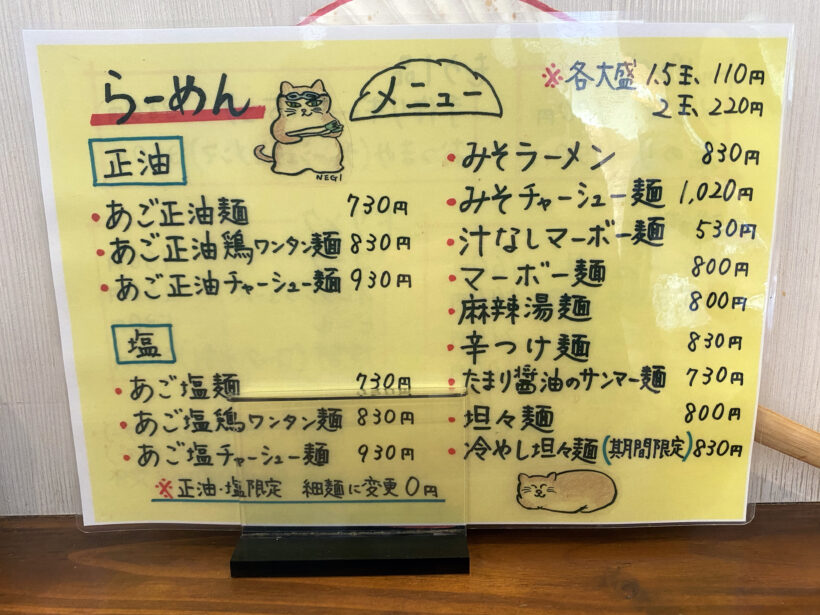 らーめん
メニュー
NEGI
正油
・あご正油麺 730円
・あご正油鶏ワンタン麺 830円
・あご正油チャーシュー麺 930円
塩
・あご塩麺 730円
・あご塩鶏ワンタン麺 830円
・あご塩チャーシュー麺 930円
※正油・塩限定 細麺に変更0円
※各大盛 1.5玉、110円
2玉、220円
・みそラーメン 830円
・みそチャーシュー麺 1,020円
・汁なしマーボー麺 530円
・マーボー麺 800円
・麻辣湯麺 800円
・辛つけ麺 830円
・たまり醤油のサンマー麺 730円
・坦々麺 800円
・冷やし坦々麺(期間限定)830円